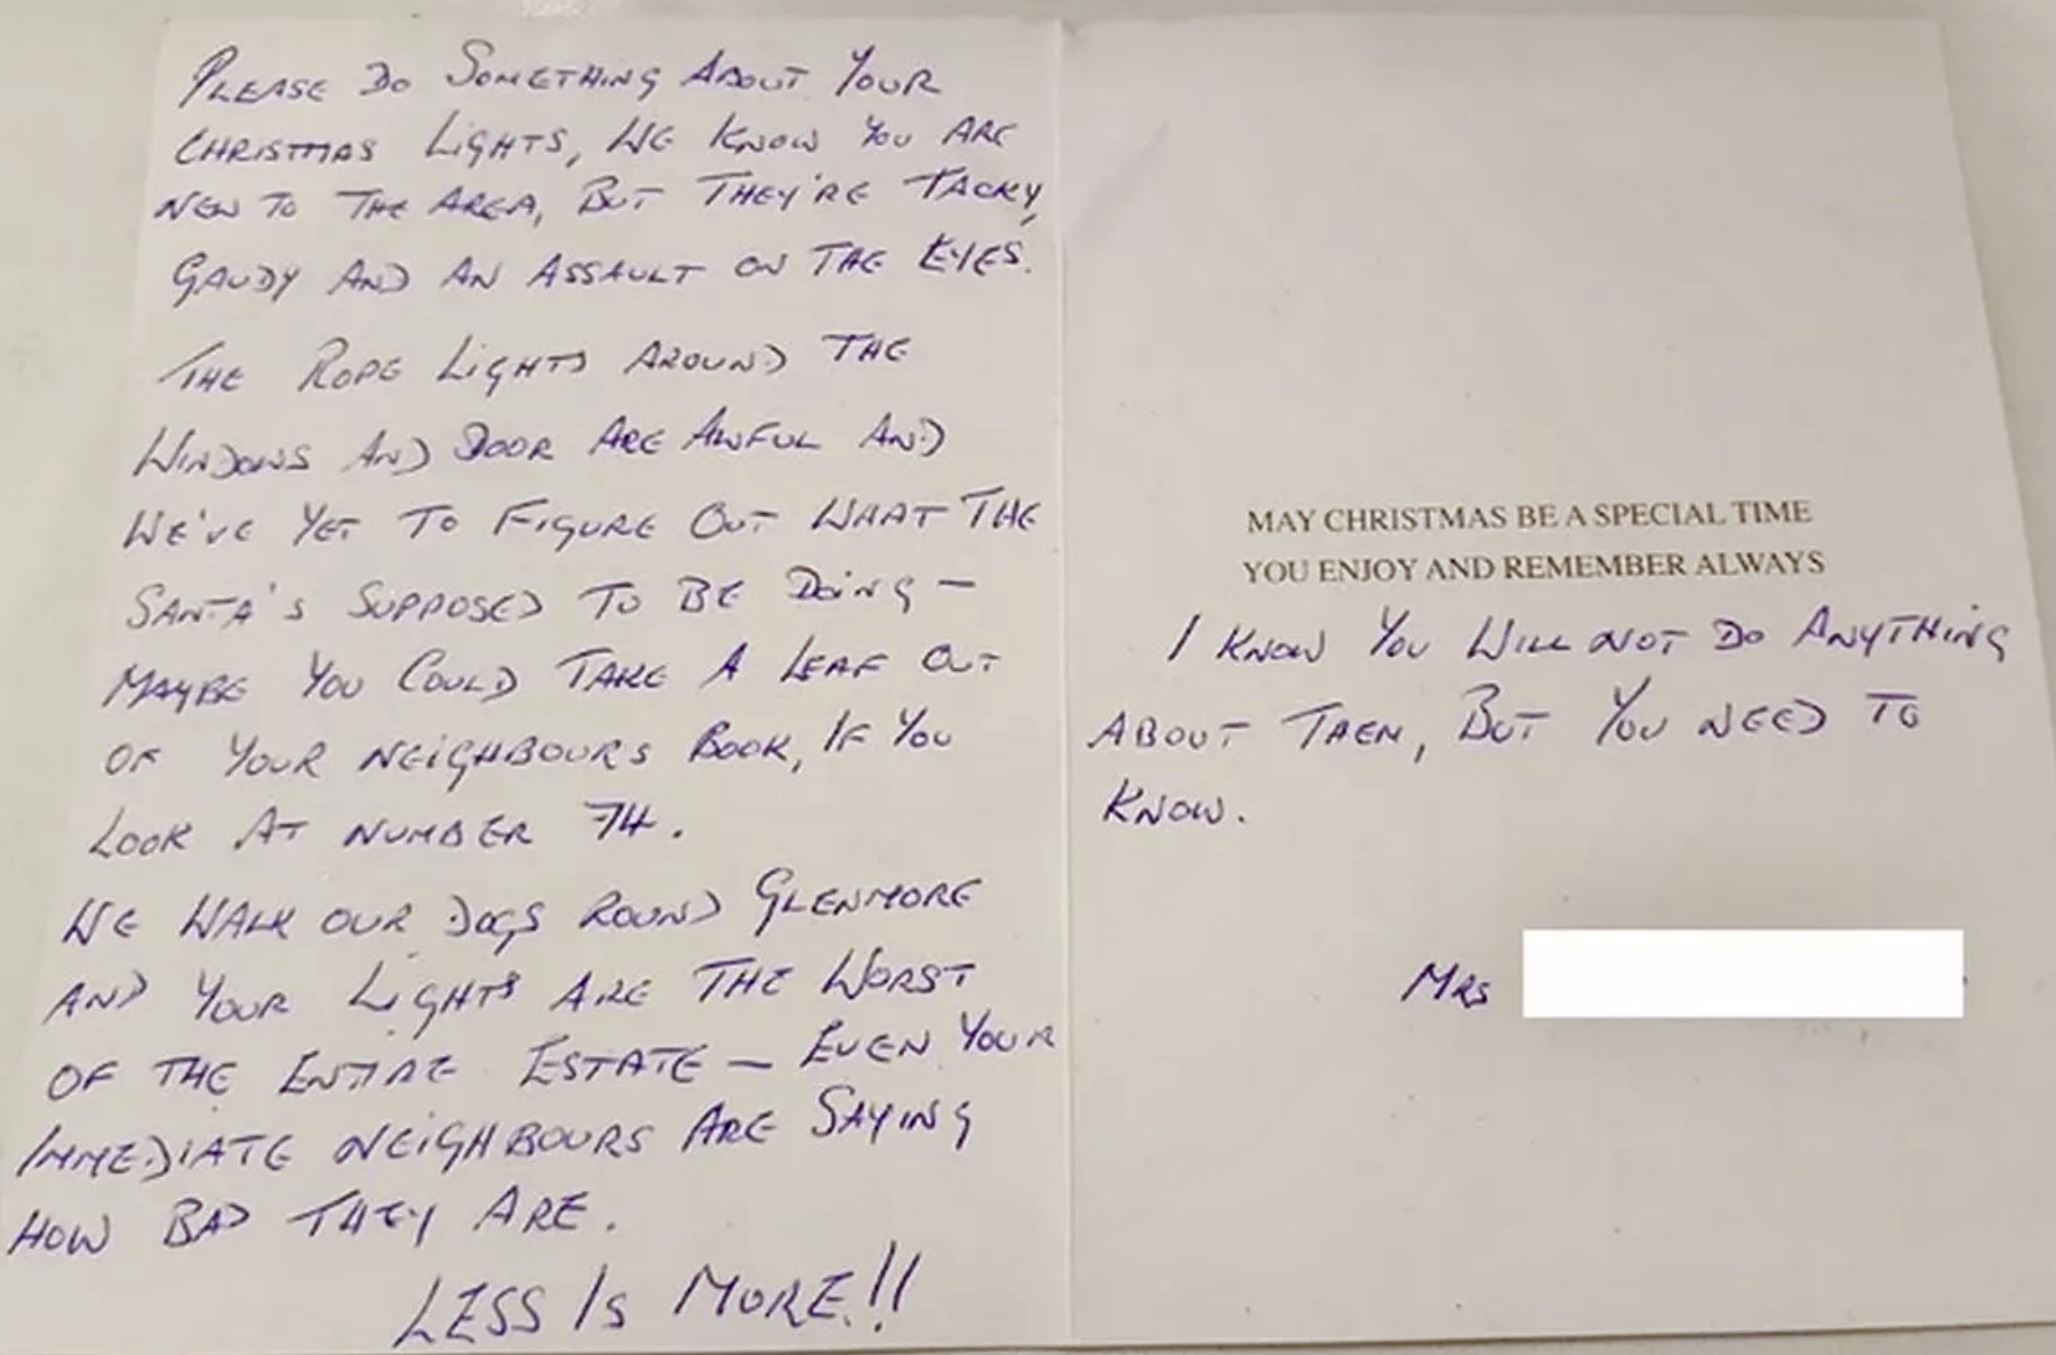 PLEASE DO SOMETHING ABOUT YOUR
CHRISTMAS LIGHTS, WE KNOW YOU ARE
NEW TO THE AREA, BUT THEY'RE TACKY,
GAUDY AND AN ASSAULT ON THE EYES.
THE ROPE LIGHTS AROUND THE
WINDOWS AND DOOR ARE AWFUL AND
WE'VE YET TO FIGURE OUT WHAT THE
SANTA'S SUPPOSED TO BE DOING –
MAYBE YOU COULD TAKE A LEAF OUT
OF YOUR NEIGHBOURS BOOK, IF YOU
LOOK AT NUMBER 74.
WE WALK OUR DOGS ROUND GLENMORE
AND YOUR LIGHTS ARE THE WORST
OF THE ENTIRE ESTATE – EVEN YOUR
IMMEDIATE NEIGHBOURS ARE SAYING
HOW BAD THEY ARE.
LESS IS MORE!!
MAY CHRISTMAS BE A SPECIAL TIME
YOU ENJOY AND REMEMBER ALWAYS
I KNOW YOU WILL NOT DO ANYTHING
ABOUT THEM, BUT YOU NEED TO
KNOW.
MRS